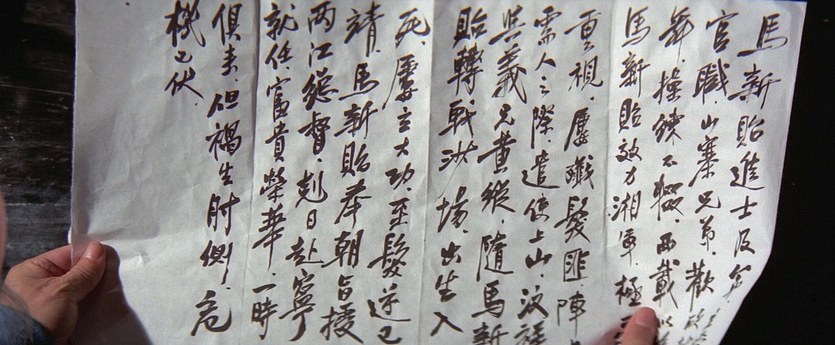 馬新貽進士及第
官職山寨兄弟歡
舞操練不輟兩載
馬新貽效力湘軍極
重視屢殲髮匪陣
需人之際遣使上山汶祥
與義兄黃縱隨馬新
貽轉戰沙場出生入
死屢立大功至髮逆已
靖馬新貽奉朝旨援
两江總督剋日赴寧
就任富貴榮華一時
俱来但禍生肘側危
機已伏